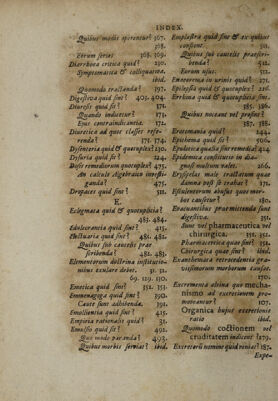 INDEX.
Quibus modis operentur? 367.
368.
Eorum series 368. 369.
Diarrhoea critica quid? 230.
Symptomatica & colliquativa.
ibid.
Quomodo tractanda? 197.
Digestiva quid sint? 403. 404.
Diuresis quid sit? 171.
Quando inducitur? 171.
Ejus contraindicantia. 172.
Diuretica ad quot classes refe-
renda? 173. 174.
Dysenteria quid & quotuplex? 220.
Dysuria quid sit? 224.
Dosis remediorum quotuplex? 425.
An calculo Algebraico investi-
ganda? 475.
Dropaces quid sint? 511.
E.
Eclegmata quid & quotuplicia?
483. 484.
Edulcorantia quid sint? 415.
Electuaria quid sint? 481. 482.
Quibus sub cautelis prae
scribenda? 482. 483.
Elementorum doctrina institutio-
nibus exulare debet. 31. 32.
69. 129. 130.
Emetica quid sint? 352. 353.
Emmenagoga quid sint? 390.
Caute sunt adhibenda. 391.
Emollientia quid sint? 415.
Empiria rationalis quid? 31.
Emulsio quid sit? 492.
Quo modo paranda? 493.
Quibus morbis serviat? ibid.
Emplastra quid sint & ex quibus
constent. 511.
Quibus sub cautelis praescri-
benda? 512.
Eorum usus: 512.
Eneorema in urinis quid? 271.
Epilepsia quid & quotuplex? 216.
Errhina quid & quotuplicia sint.
385. 386.
Quibus noceant vel prosint?
387. 388.
Erotomania quid? 2444.
Epithema quid sit? 506.
Epulotica qualia sint remedia? 424.
Epidemica constitutio in cor-
pus & multum valet. 266.
Erysipelas male tractatum quae
damna post se trahat? 271.
Esculentorum abusus quos mor-
bos causetur? 180.
Evacuantibus praemittenda sunt
digestiva. 351.
Sunt vel pharmaceutica vel
chirurgica. 351. 352.
Pharmaceutica quae sint? 352.
Chirurgica quae sint? ibid.
Exanthemata retrocedentia gra-
vissimorum morborum causae.
170.
Excrementa alvina quo mecha-
nismo ad excretionem pro-
moveantur? 107.
Organica hujus excretionis
ratio ibid.
Quomodo coctionem vel
cruditatem indicent? 279.
Excretorii nomine quid veniat? 187.
Expe-